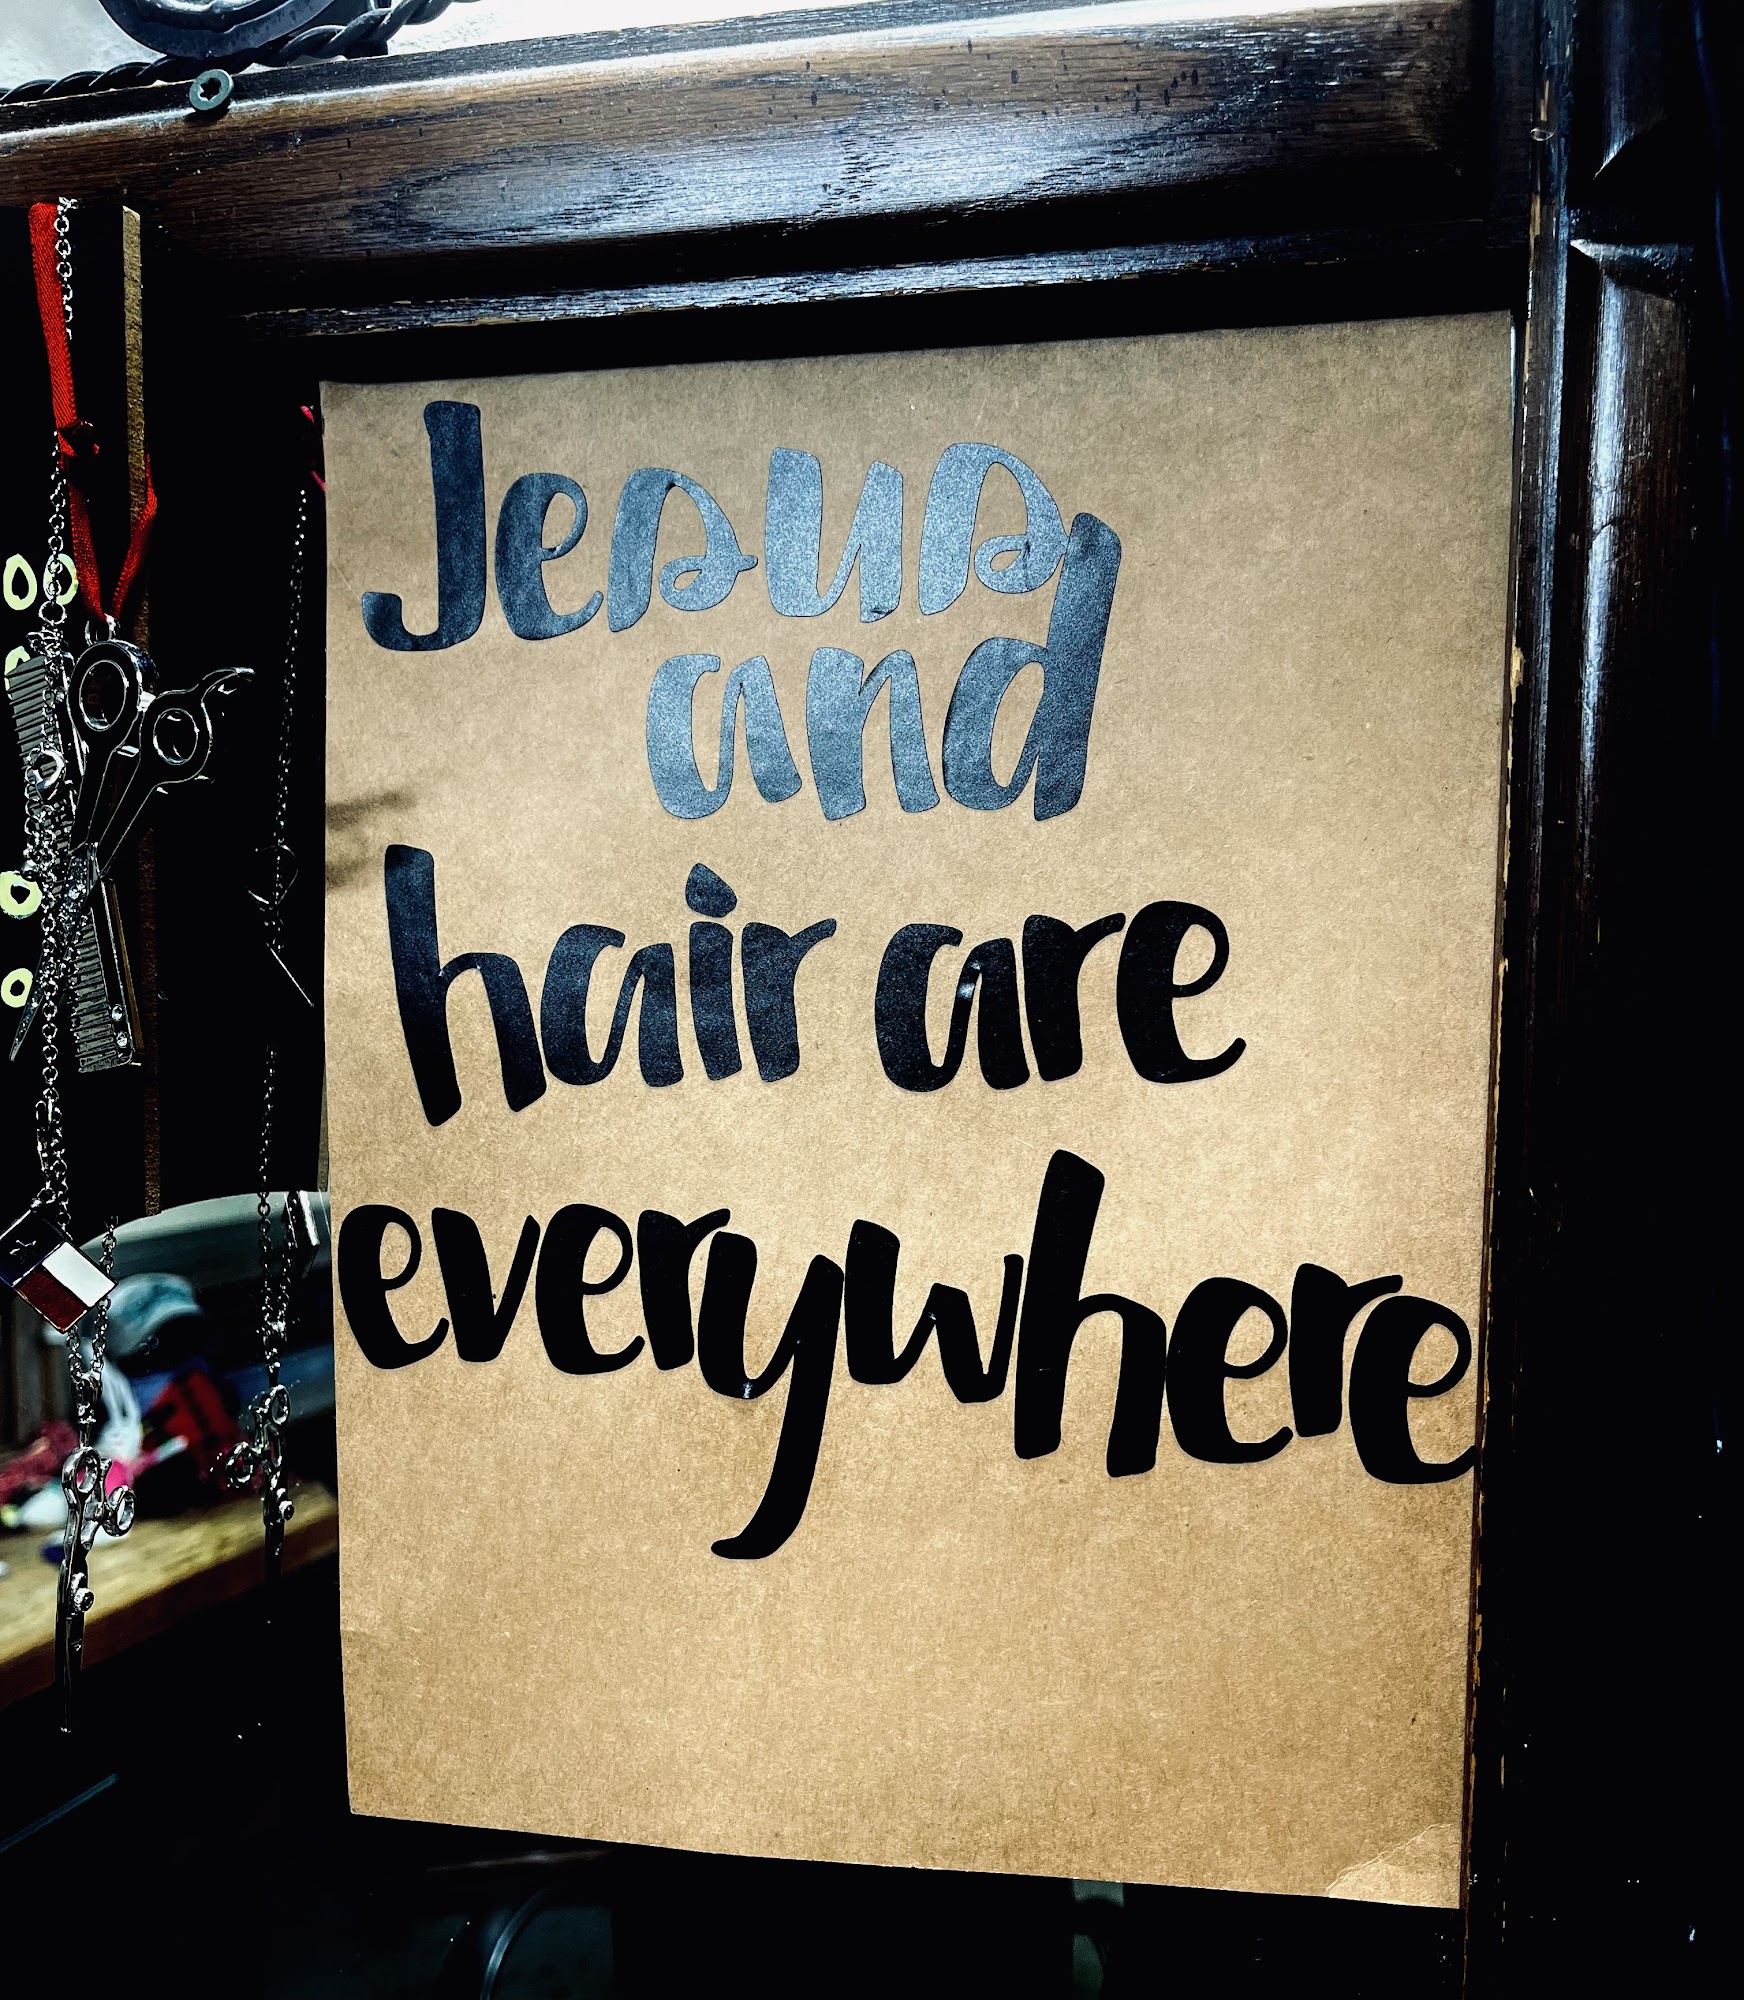 Jesus
and
hair are
everywhere